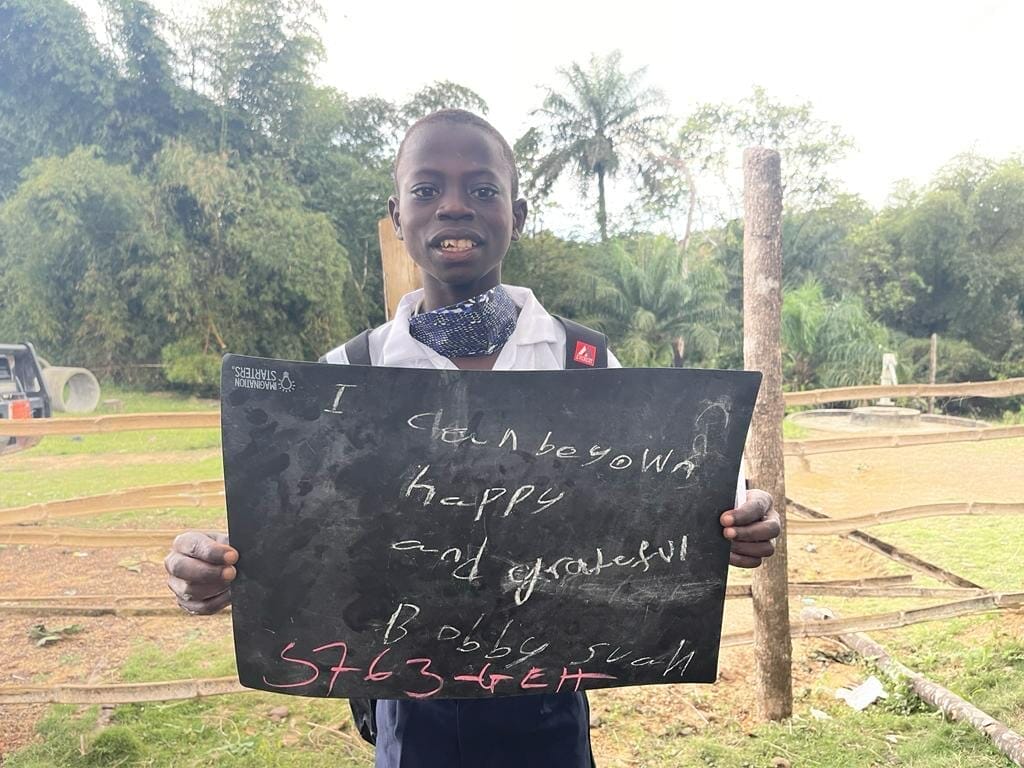 IMAGINATION
STARTERS
I
Can be yown
happy
and grateful
Bobby Suah
S763-GEH